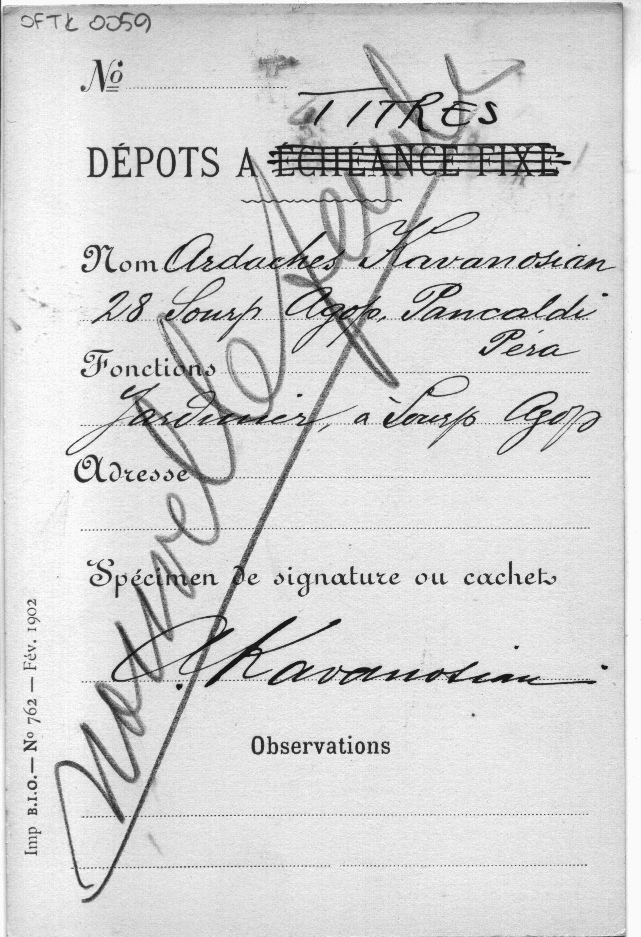 OFTŁ 0059
Nº
TITRES
DÉPOTS A ÉCHÉANCE FIXE
Nom Ardaches Kavanosian
28 Sourp Agop, Pancaldi
Péra
Fonctions
Jardinier, à Sourp Agop
Adresse
Spécimen de signature ou cachet
A Kavanosian
Observations
Imp B.I.O. — Nº 762 — Fév. 1902
nouvelle feuille